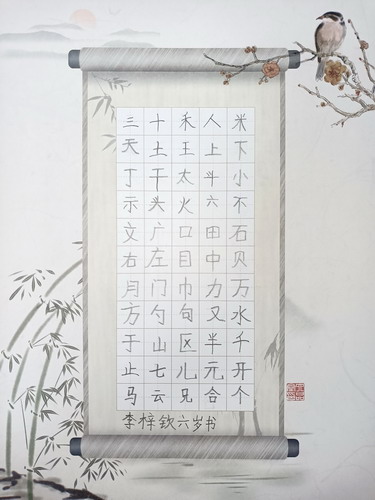 三十禾人米
天土王上下
丁干太斗小
示头火六不
文广口田石
右左目中贝
月门巾力万
方勺句又水
于山区半千
止七儿元开
马云兄合个
李梓钦六岁书